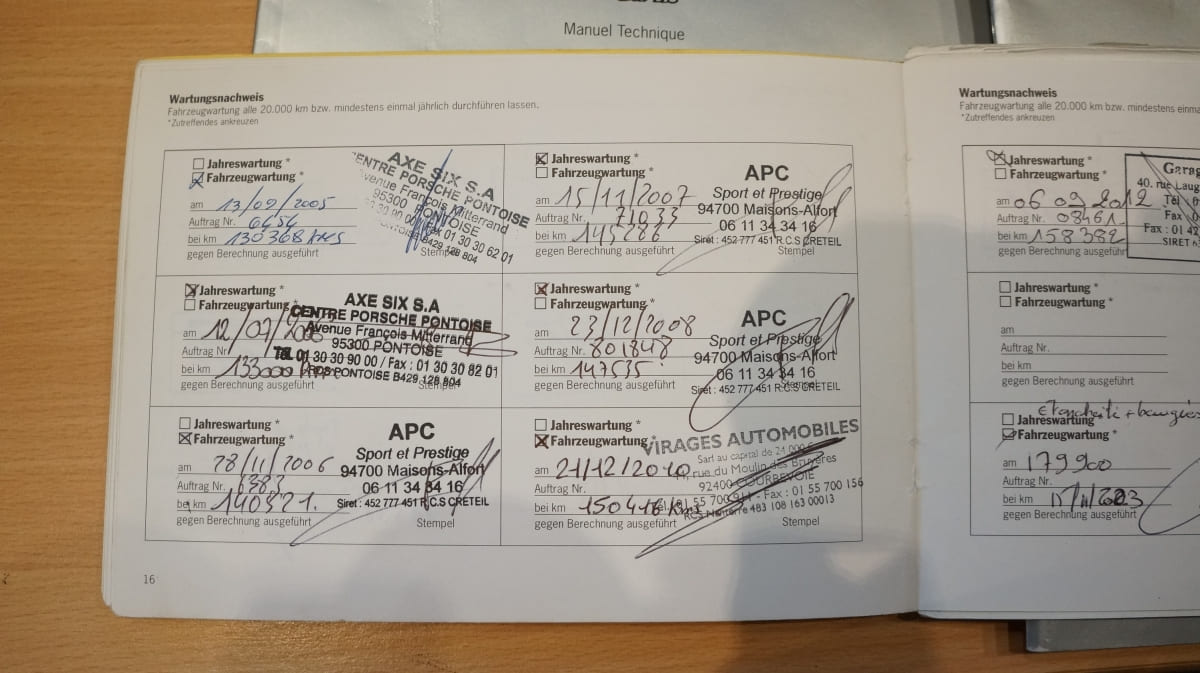 Manuel Technique
Wartungsnachweis
Fahrzeugwartung alle 20.000 km bzw. mindestens einmal jährlich durchführen lassen.
*Zutreffendes ankreuzen
Jahreswartung *
Fahrzeugwartung *
am 13/09/2005
Auftrag Nr. 6454
bei km 130368 KMS
gegen Berechnung ausgeführt
AXE SIX S.A
CENTRE PORSCHE PONTOISE
Avenue François Mitterrand
95300 PONTOISE
Fax 01 30 30 62 01
PONTOISE B429 128 804
Stempel
Jahreswartung *
Fahrzeugwartung *
am 12/07/
Auftrag Nr.
bei km 133000
gegen Berechnung ausgeführt
AXE SIX S.A
CENTRE PORSCHE PONTOISE
Avenue François Mitterrand
95300 PONTOISE
Tél. 01 30 30 90 00 / Fax : 01 30 30 82 01
RCS PONTOISE B429 128 804
Stempel
Jahreswartung *
Fahrzeugwartung *
am 28/11/2006
Auftrag Nr.
bei km 140321.
gegen Berechnung ausgeführt
APC
Sport et Prestige
94700 Maisons-Alfort
06 11 34 34 16
Siret : 452 777 451 R.C.S CRETEIL
Stempel
16
Jahreswartung *
Fahrzeugwartung *
am 15/11/2007
Auftrag Nr. 71033
bei km 145286
gegen Berechnung ausgeführt
APC
Sport et Prestige
94700 Maisons-Alfort
06 11 34 34 16
Siret : 452 777 451 R.C.S CRETEIL
Stempel
Jahreswartung *
Fahrzeugwartung *
am 23/12/2008
Auftrag Nr. 801848
bei km 147535
gegen Berechnung ausgeführt
APC
Sport et Prestige
94700 Maisons-Alfort
06 11 34 34 16
Siret : 452 777 451 R.C.S CRETEIL
Stempel
Jahreswartung *
Fahrzeugwartung *
am 21/12/2010
Auftrag Nr.
bei km 150416 Kms
gegen Berechnung ausgeführt
VIRAGES AUTOMOBILES
Sarl au capital de 21 000 €
rue du Moulin des Bruyères
92400 COURBEVOIE
Tél. 01 55 700 - Fax : 01 55 700 156
RCS Nanterre 483 108 163 00013
Stempel
Wartungsnachweis
Fahrzeugwartung alle 20.000 km bzw. mindestens einma
*Zutreffendes ankreuzen
Jahreswartung *
Fahrzeugwartung *
am 06 09 2012
Auftrag Nr. 03461
bei km 158382
gegen Berechnung ausgeführt
Garag
40. rue Laug
Tél
Fax
Fax : 01 42
SIRET n
Jahreswartung *
Fahrzeugwartung *
am
Auftrag Nr.
bei km
gegen Berechnung ausgeführt
Jahreswartung
Fahrzeugwartung *
am 179900
Auftrag Nr.
bei km
gegen Berechnung ausgeführt